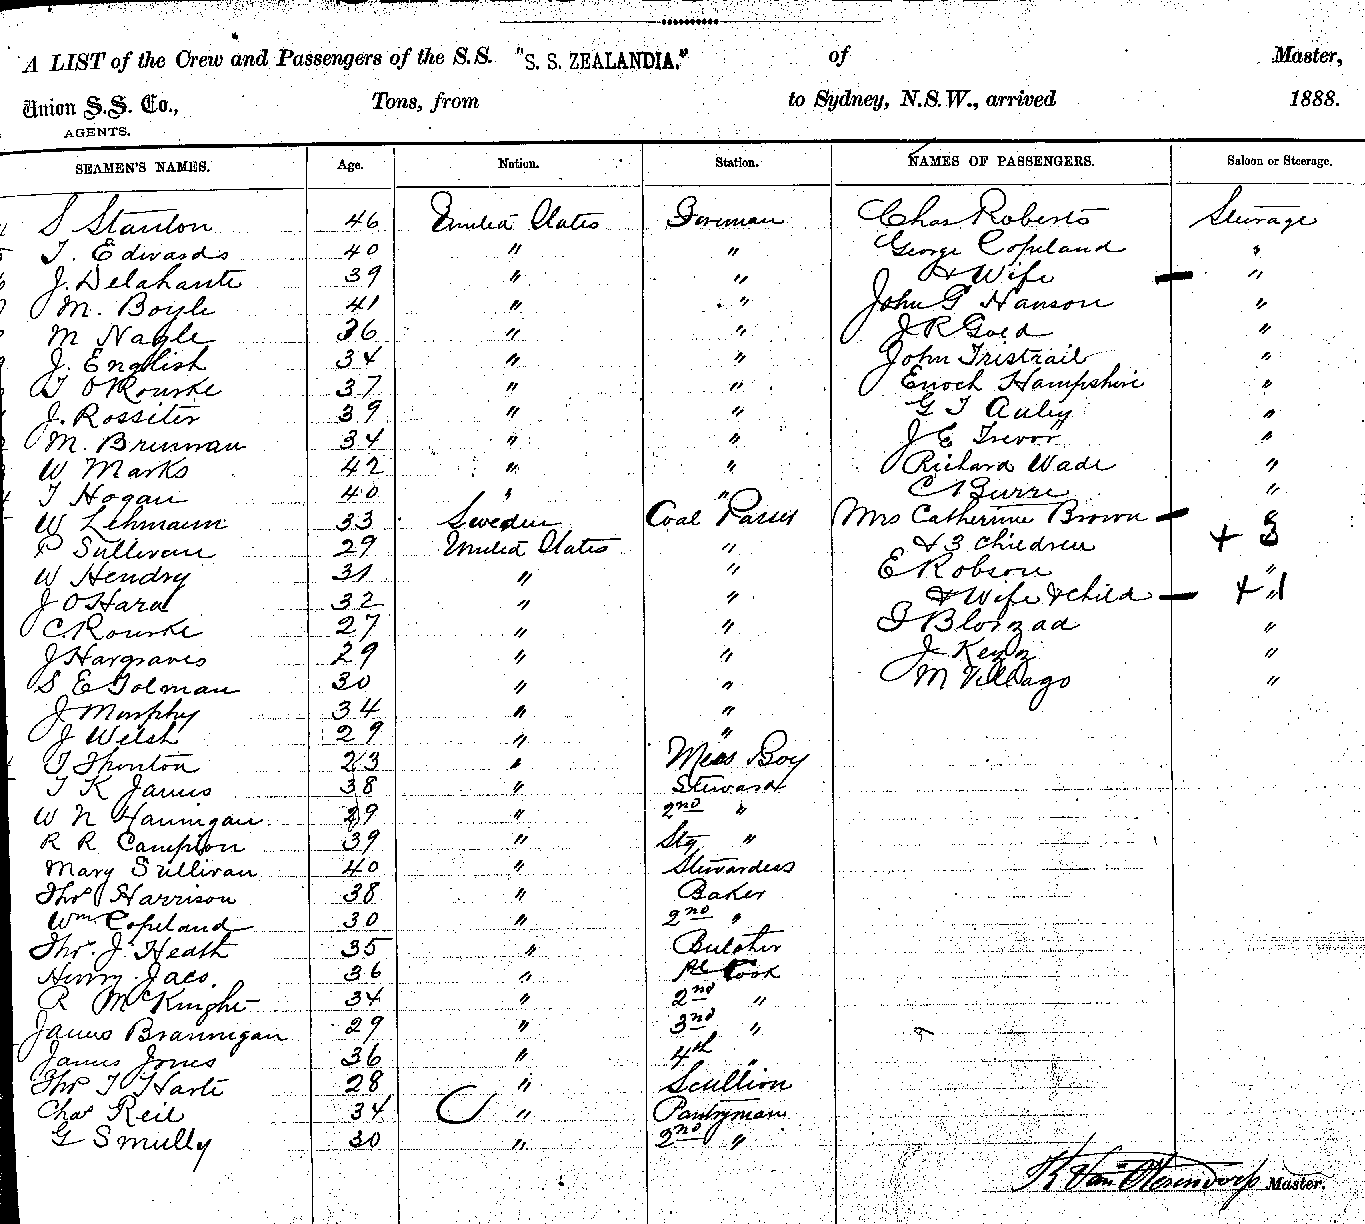 A LIST of the Crew and Passengers of the S.S. "S. S. ZEALANDIA." of Master,
Union S.S. Co., Tons, from to Sydney, N.S.W., arrived 1888.
AGENTS.
SEAMEN'S NAMES. Age. Nation. Station. NAMES OF PASSENGERS. Saloon or Steerage.
S Stanton 46 United States Fireman Chas Roberts Steerage
T. Edwards 40 " " George Copeland "
J. Delahante 39 " " & Wife — "
M. Boyle 41 " " John G Hanson "
M Nagle 36 " " J R Goed "
J. English 34 " " John Tristrail "
T O'Rourke 37 " " Enoch Hampshire "
J. Rossiter 39 " " G T Auley "
M. Brennan 34 " " J E Trevor "
W Marks 42 " " Richard Wade "
T Hogan 40 " " C Burre "
W Lehmann 33 Sweden Coal Passer Mrs Catherine Brown — "
P Sullivan 29 United States " & 3 children + 3
W Hendry 31 " " E Robson "
J O'Hara 32 " " & Wife & child — + 1
C Rourke 27 " " "
J Hargraves 29 " " J "
S E Tolman 30 " " M "
J Murphy 34 " "
J Welsh 29 " "
T Thonton 23 " Mess Boy
T K James 38 " Steward
W N Hannigan 29 " 2nd "
R R Campton 39 " Stg "
Mary Sullivan 40 " Stewardess
Thos Harrison 38 " Baker
Wm Copeland 30 " 2nd "
Thos. J. Heath 35 " Butcher
Henry Jacs. 36 " Cook
R McKnight 34 " 2nd "
James Brannigan 29 " 3rd "
James Jones 36 " 4th "
Thos T Harte 28 " Scullion
Chas Reil 34 " Pantryman
G Smully 30 " 2nd "
Master.